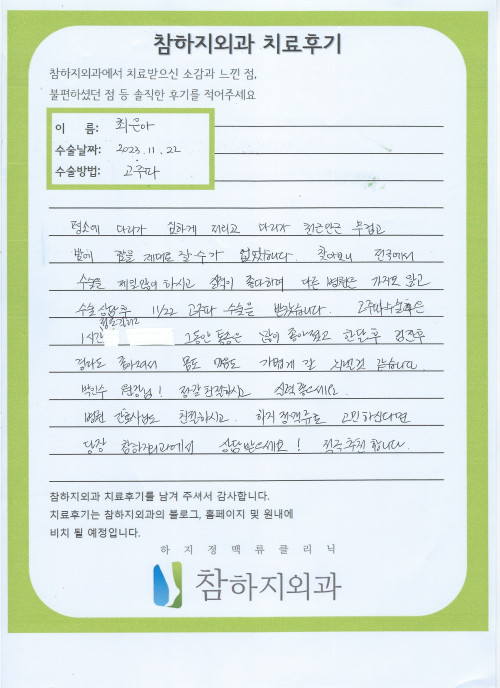 참하지외과 치료후기
참하지외과에서 치료받으신 소감과 느낀 점,
불편하셨던 점 등 솔직한 후기를 적어주세요
이 름: 최은아
수술날짜: 2023. 11. 22
수술방법: 고주파
평소에 다리가 심하게 저리고 다리가 천근만근 무겁고
밤에 잠을 제대로 잘 수가 없었습니다. 찾아보니 전국에서
수술을 제일 많이 하시고 실력이 좋다하며 다른 병원은 가지도 않고
수술 상담 후 11/22 고주파 수술을 받았습니다. 고주파 수술후은
1시간 정도 걸리고 그동안 통증은 많이 좋아졌고 한달후 검진후
경과도 좋아져서 몸도 마음도 가볍게 잘 지낼것 같습니다
박인수 원장님! 정말 친절하시고 실력 좋으세요.
병원 간호사님도 친절하시고. 하지정맥류로 고민하신다면
당장 참하지외과에서 상담 받으세요! 적극 추천합니다.
참하지외과 치료후기를 남겨 주셔서 감사합니다.
치료후기는 참하지외과의 블로그, 홈페이지 및 원내에
비치 될 예정입니다.
하지정맥류클리닉
참하지외과